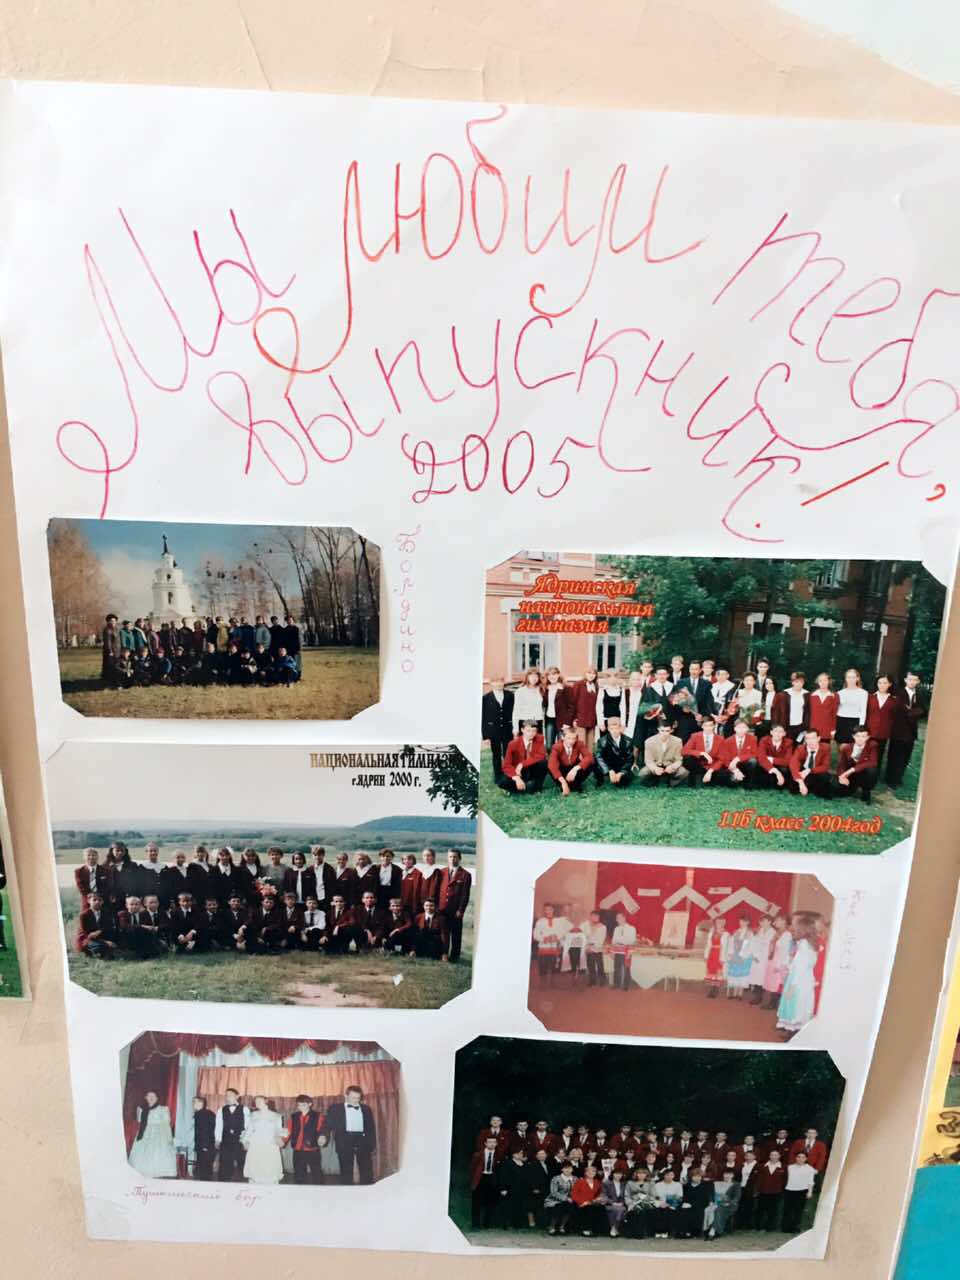 Мы любим тебя,
выпускник!
2005
Болдино
Ядринская
национальная
гимназия
11б класс 2004год
НАЦИОНАЛЬНАЯ ГИМНАЗИ
г.ЯДРИН 2000 г.
"Пушкинский бал"